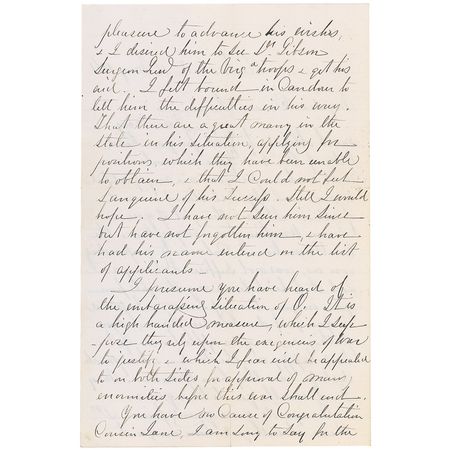 pleasure to advance his wishes,
& I desired him to see Dr. Gibson
Surgeon Genl of the Virga troops & get his
aid. I felt bound in Candour to
tell him the difficulties in his way.
That there are a great many in the
state in his situation, applying for
positions, which they have been unable
to obtain, & that I could not feel
Sanguine of his Success. Still I would
hope. I have not seen him since
but have not forgotten him, & have
had his name entered on the list
of applicants—
I presume you have heard of
the embarassing situation of O. It is
a high handed measure, which I sup
-pose they rely upon the exigencies of war
to justify & which I fear will be appealed
to on both sides for approval of many
enormities before this war shall end.
You have no Cause of Congratulation
Cousin Jane, I am sorry to say for the